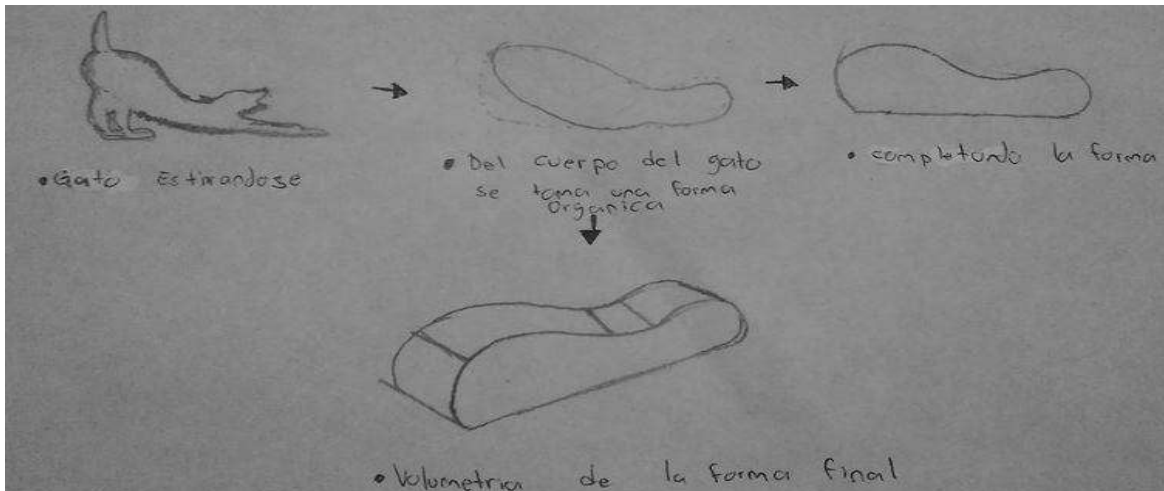 • Gato Estirandose
• Del cuerpo del gato
se toma una forma
Organica
• completando la forma
• Volumetria de la forma final